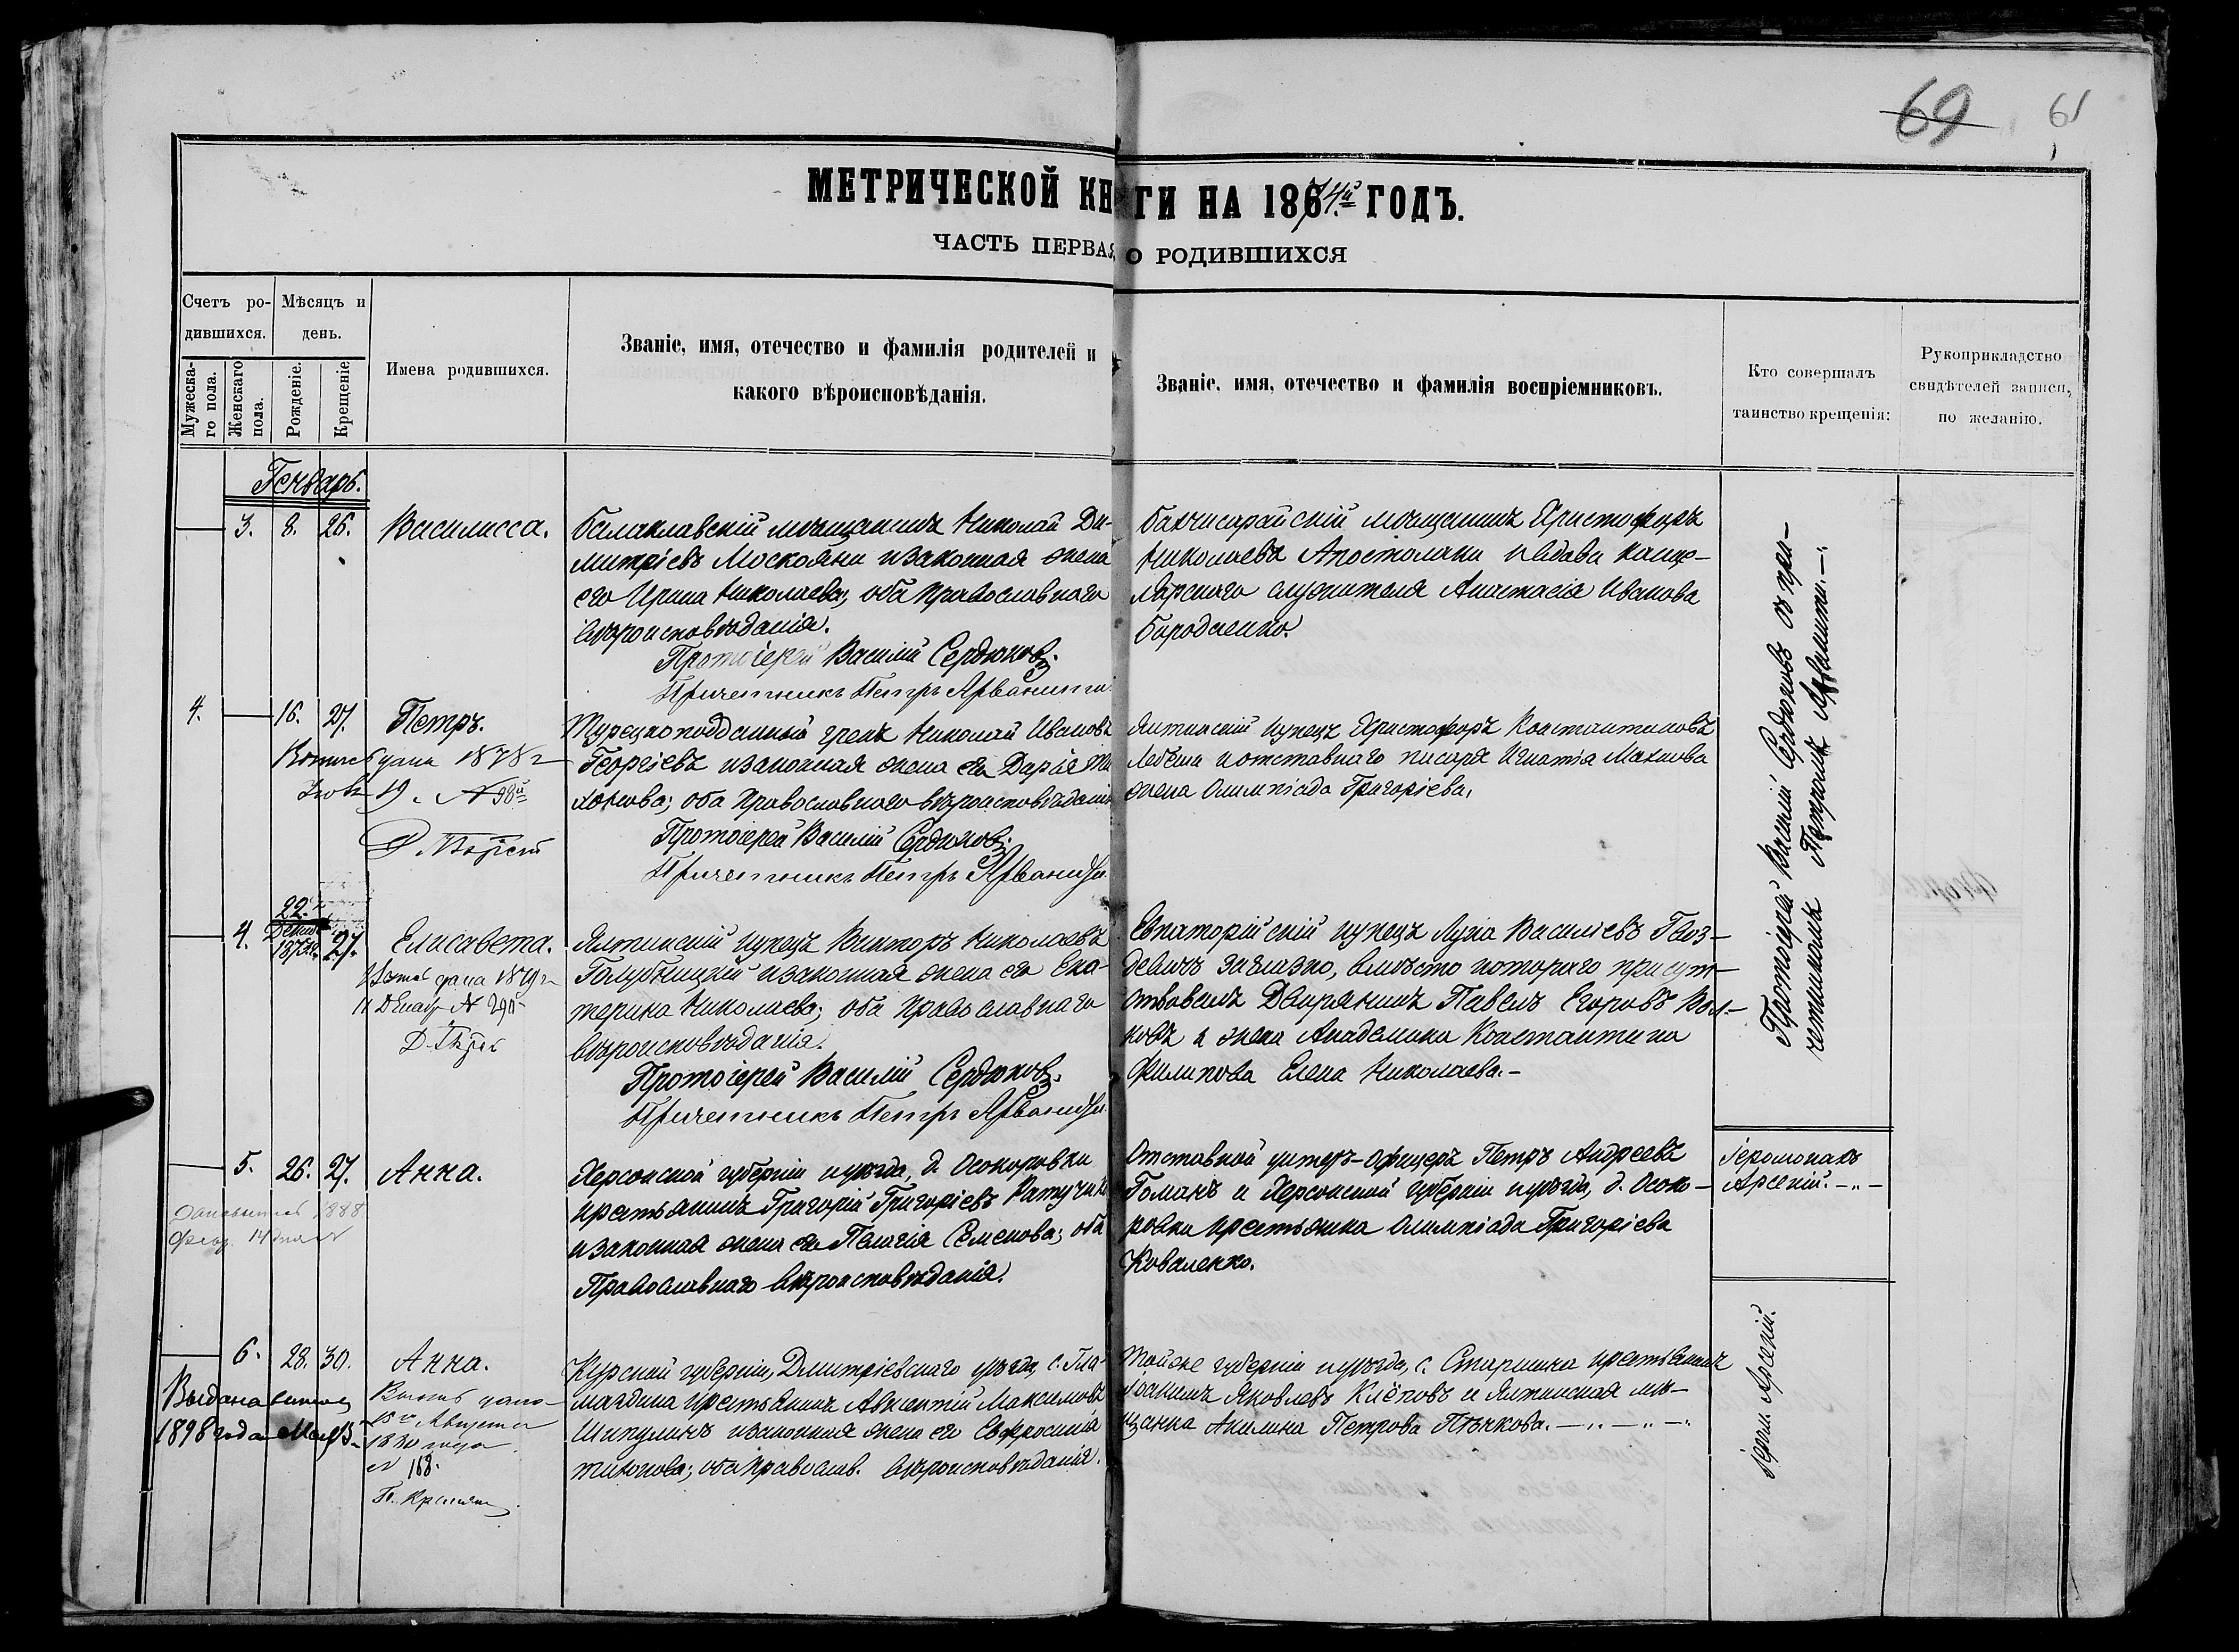 69 61
МЕТРИЧЕСКОЙ КНИГИ НА 1874й ГОДЪ.
ЧАСТЬ ПЕРВАЯ, О РОДИВШИХСЯ
Счетъ ро-
дившихся.
Мѣсяцъ и
день.
Мужеска-
го пола.
Женскаго
пола.
Рожденіе.
Крещеніе
Имена родившихся.
Званіе, имя, отечество и фамилія родителей и
какого вѣроисповѣданія.
Званіе, имя, отечество и фамилія воспріемниковъ.
Кто совершалъ
таинство крещенія:
Рукоприкладство
свидѣтелей записи,
по желанію.
Генварь.
3. 8. 26. Василисса.
Балаклавскій мѣщанинъ Николай Ди-
митріевъ Москояни и законная жена
его Ирина Николаева; оба Православнаго
вѣроисповѣданія.
Протоіерей Василій Сердюковъ.
Причетникъ Петръ Арванити.
Бахчисарайскій мѣщанинъ Христофоръ
Николаевъ Апостолаки и вдова канце-
лярскаго служителя Анастасія Иванова
Бородченко.
Протоіерей Василій Сердюковъ съ при-
четникомъ Петромъ Арванити.
4. 16. 27. Петръ.
дана 1878 г
19. № 98й
Турецкоподданный грекъ Николай Ивановъ
Георгіевъ и законная жена его Дарія Ти-
хонова; оба Православнаго вѣроисповѣданія
Протоіерей Василій Сердюковъ.
Причетникъ Петръ Арваниди
Ялтинскій купецъ Христофоръ Константиновъ
Лебеши и отставнаго писаря Игнатія Махнова
жена Олимпіада Григоріева.
4. 22. Декаб. 1873 г. 27. Елисавета.
дана 1879 г
11 Декаб №
Ялтинскій купецъ Викторъ Николаевъ
Голубницкій и законная жена его Ека-
терина Николаева; оба Православнаго
вѣроисповѣданія.
Протоіерей Василій Сердюковъ.
Причетникъ Петръ Арваниди
Евпаторійскій купецъ Лука Василіевъ Гвоз-
девичъ заглазно, вмѣсто котораго присут-
ствовалъ Дворянинъ Павелъ Егоровъ Вол-
ковъ и жена Академика Константина
Филипова Елена Николаева.-
5. 26. 27. Анна.
1888
14
Херсонской губерніи и уѣзда, д. Осокоровки
крестьянинъ Григорій Григоріевъ
и законная жена его Пелагія Семенова; оба
Православнаго вѣроисповѣданія.
Отставной унтеръ-офицеръ Петръ Андреевъ
Гоманъ и Херсонской губерніи и уѣзда, д. Осоко-
ровки крестьянка Олимпіада Григоріева
Коваленко.
Іеромонахъ
Арсеній. -"-
6. 28. 30. Анна.
Выдана
1898 года
дана
15го Августа
1890 года
№ 168.
Курской губерніи, Дмитріевскаго уѣзда, с.
крестьянинъ Авксентій Максимовъ
Шикулинъ и законная жена его Евфросинія
Тихонова; оба Правосл. вѣроисповѣданія.
Той же губерніи и уѣзда, с. крестьянинъ
Іоакимъ Яковлевъ Клёповъ и Ялтинская мѣ-
щанка Акилина Петрова Пѣнкова. -"-"-
іером. Арсеній.